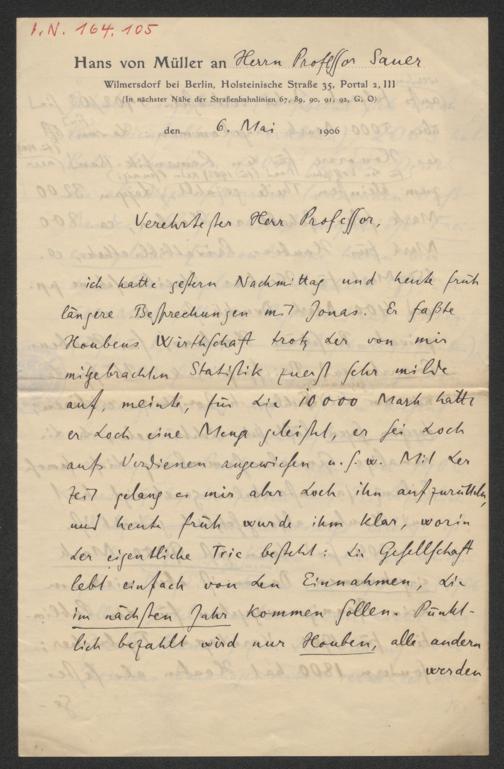 I.N. 164.105
Hans von Müller an Herrn Professor Sauer
Wilmersdorf bei Berlin, Holsteinische Straße 35, Portal 2, III
(In nächster Nähe der Straßenbahnlinien 67, 89, 90, 91, 92, G, O)
den 6. Mai 1906
Verehrtester Herr Professor,
ich hatte gestern Nachmittag und heute früh
längere Besprechungen mit Jonas. Er faßte
Houbens Wirthschaft trotz der von mir
mitgebrachten Statistik zuerst sehr milde
auf, meinte, für die 10000 Mark hätte
er doch eine Menge geleistet, er sei doch
aufs Verdienen angewiesen u.s.w. Mit der
Zeit gelang es mir aber doch ihn aufzurütteln,
und heute früh wurde ihm klar, worin
der eigentliche Tric besteht: die Gesellschaft
lebt einfach von den Einnahmen, die
im nächsten Jahr kommen sollen. Pünkt-
lich bezahlt wird nur Houben, alle andern
werden